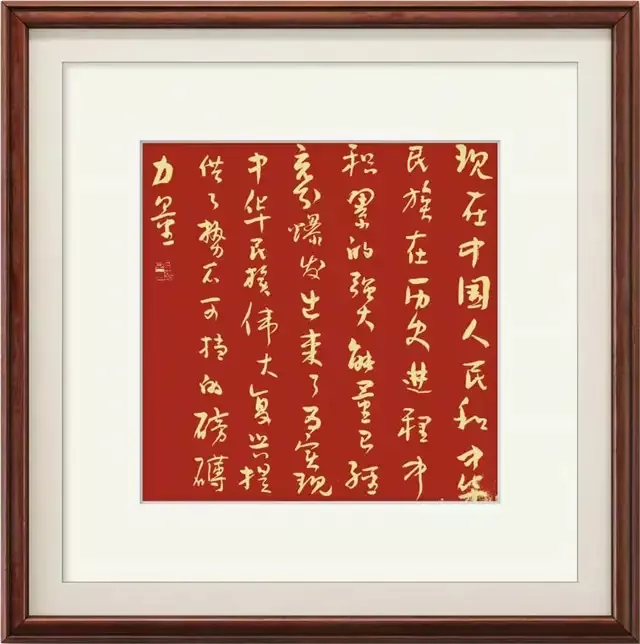 现在中国人民和中华
民族在历史进程中
积累的强大能量已经
充分爆发出来了为实现
中华民族伟大复兴提
供了势不可挡的磅礴
力量